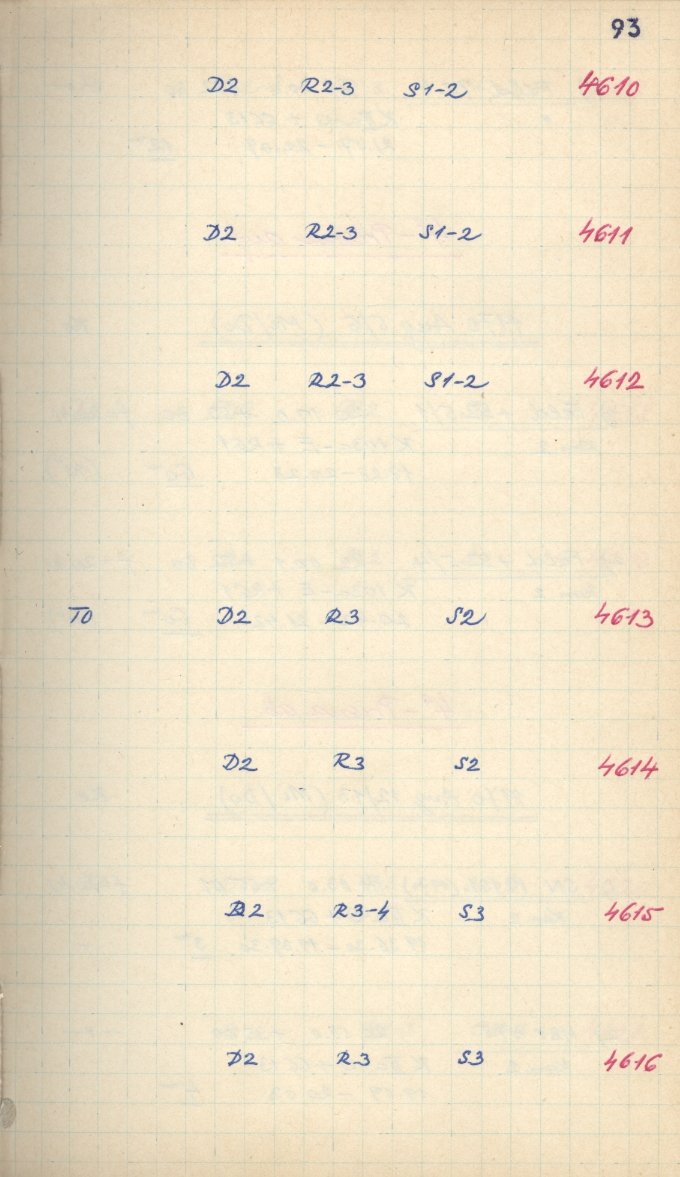 93
D2 R2-3 S1-2 4610
D2 R2-3 S1-2 4611
D2 R2-3 S1-2 4612
TO D2 R3 S2 4613
D2 R3 S2 4614
D2 R3-4 S3 4615
D2 R3 S3 4616